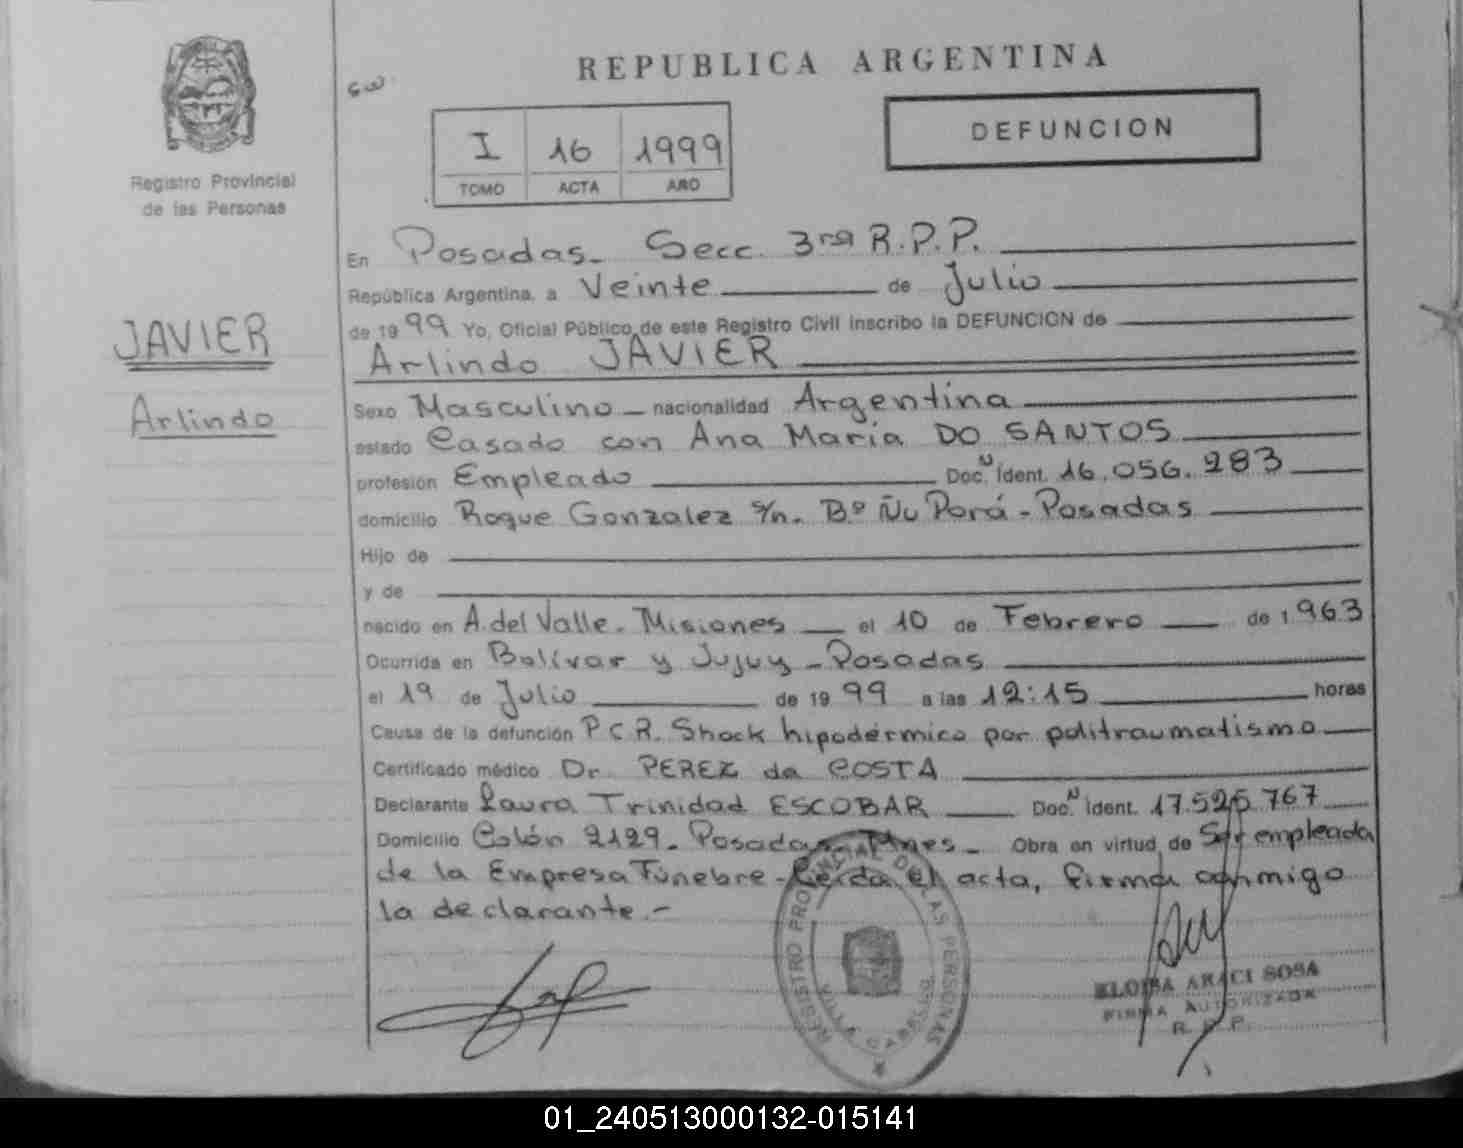 REPUBLICA ARGENTINA
I 16 1999
TOMO ACTA AÑO
DEFUNCION
Registro Provincial
de las Personas
JAVIER
Arlindo
En Posadas. Secc. 3ra R.P.P.
República Argentina, a Veinte de Julio
de 1999 Yo, Oficial Público de este Registro Civil inscribo la DEFUNCION de
Arlindo JAVIER
Sexo Masculino nacionalidad Argentina
estado Casado con Ana María DO SANTOS
profesión Empleado Doc. N Ident. 16.056.283
domicilio Roque Gonzalez s/n. Bº Ñu Porá - Posadas
Hijo de
y de
nacido en A. del Valle. Misiones el 10 de Febrero de 1963
Ocurrida en Bolívar y Jujuy - Posadas
el 19 de Julio de 1999 a las 12:15 horas
Causa de la defunción P.C.R. Shock hipodérmico por politraumatismo
Certificado médico Dr. PEREZ da COSTA
Declarante Laura Trinidad ESCOBAR Doc. N Ident. 17.525.767
Domicilio Colón 2129. Posadas Mnes. Obra en virtud de Ser empleada
de la Empresa Fúnebre - Leída el acta, firma conmigo
la declarante.-
REGISTRO PROVINCIAL DE LAS PERSONAS
VILLA CABELLO
ELOISA ARACI SOSA
FIRMA AUTORIZADA
R.P.P.
01_240513000132-015141